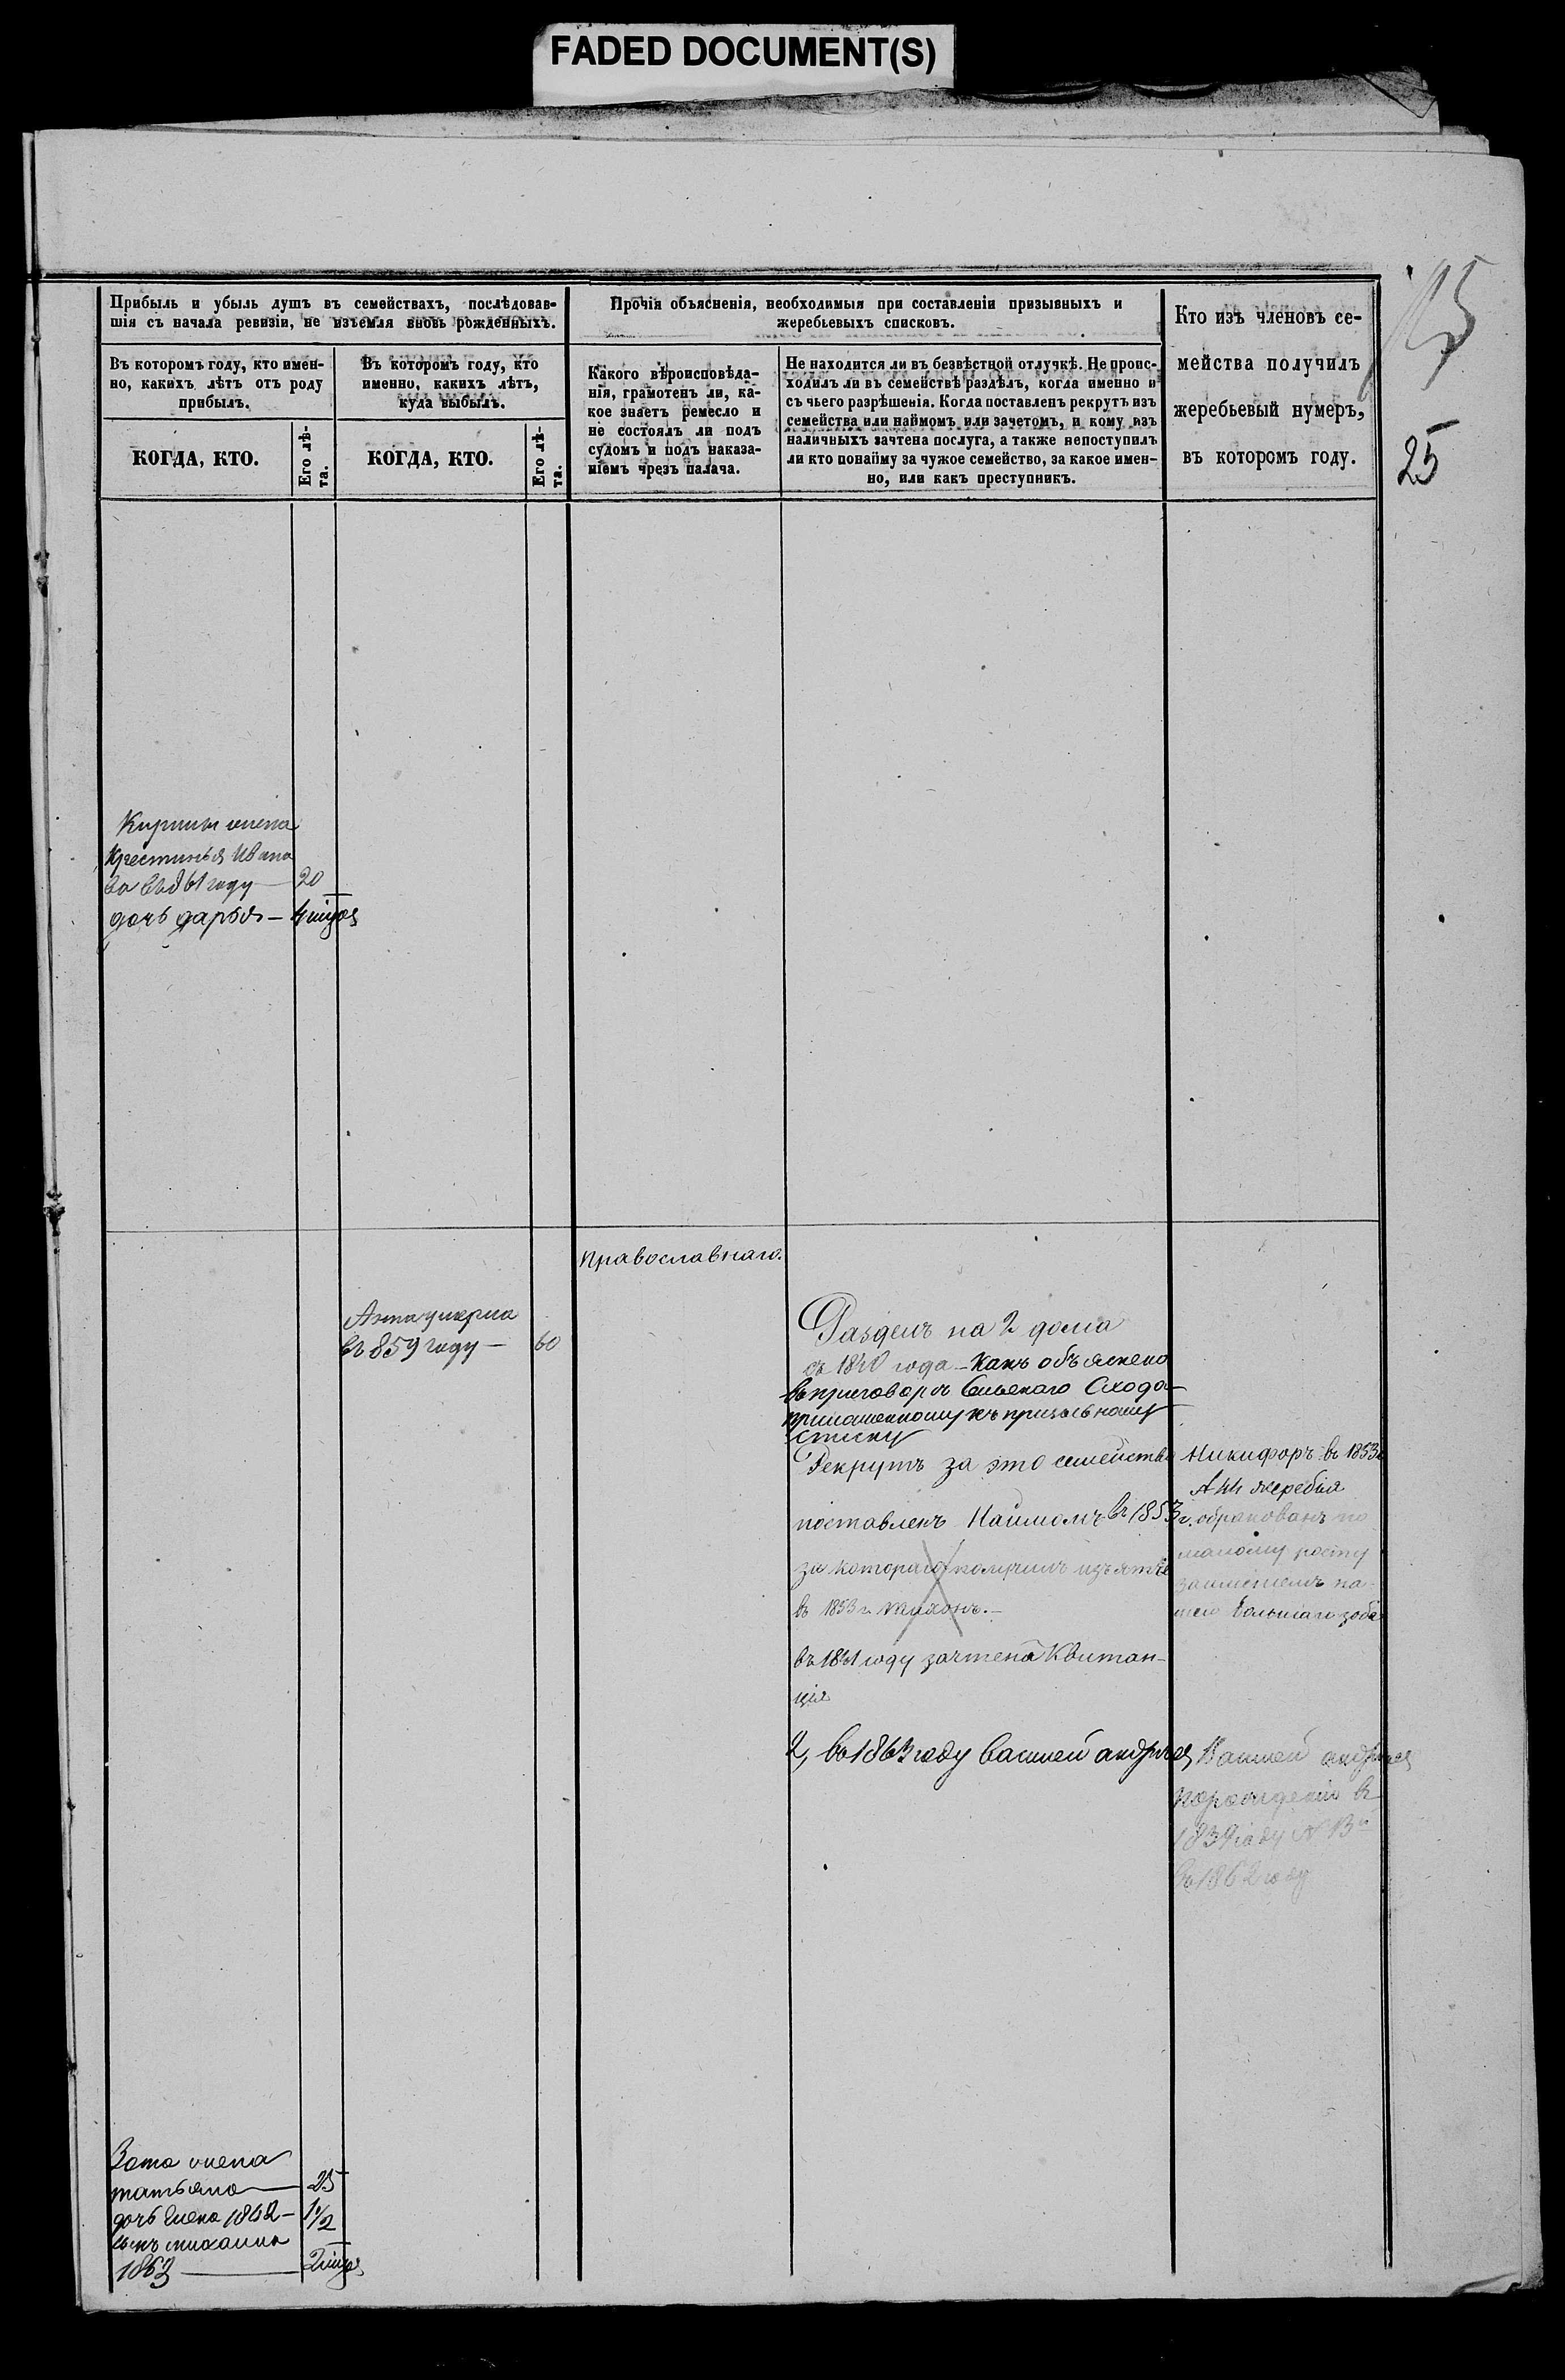 FADED DOCUMENT(S)
Прибыль и убыль душъ въ семействахъ, послѣдовав-
шія съ начала ревизіи, не изъемля вновь рожденныхъ.
Прочія объясненія, необходимыя при составленіи призывныхъ и
жеребьевыхъ списковъ.
Кто изъ членовъ се-
мейства получилъ
жеребьевый нумеръ,
въ которомъ году.
25
Въ которомъ году, кто имен-
но, какихъ лѣтъ отъ роду
прибылъ.
Въ которомъ году, кто
именно, какихъ лѣтъ,
куда выбылъ.
Какого вѣроисповѣда-
нія, грамотенъ ли, ка-
кое знаетъ ремесло и
не состоялъ ли подъ
судомъ и подъ наказа-
ніемъ чрезъ палача.
Не находится ли въ безвѣстной отлучкѣ. Не проис-
ходилъ ли въ семействѣ раздѣлъ, когда именно и
съ чьего разрѣшенія. Когда поставленъ рекрутъ изъ
семейства или наймомъ или зачетомъ, и кому изъ
наличныхъ зачтена послуга, а также непоступилъ
ли кто понайму за чужое семейство, за какое имен-
но, или какъ преступникъ.
КОГДА, КТО.
Его лѣ-
та.
КОГДА, КТО.
Его лѣ-
та.
жена
Крестинья Ивано
ва въ 861 году — 20
дочь дарья —
православнаго.
Анна умерла
въ 859 году — 60
Раздел на 2 дома
съ 1840 года - Какъ объяснено
въ приговоре Сельскаго Схода
къ призывному
списку
Рекрутъ за это семейство
поставленъ Наймомъ въ 1853 г.
за котораго получилъ изъятие
въ 1853 г. тихонъ. —
въ 1841 году зачтена Квитан-
ція
2, въ 1863 году василей андреев
Никифоръ въ 1853 г
жеребья
обракованъ по
малому росту
шеи большаго зоба
Василей андреев
въ
1839 году № 13й
въ 1862 году
жена
татьяна — 25
дочь Елена 1862 — 1 1/2
сынъ михаила
1863 —